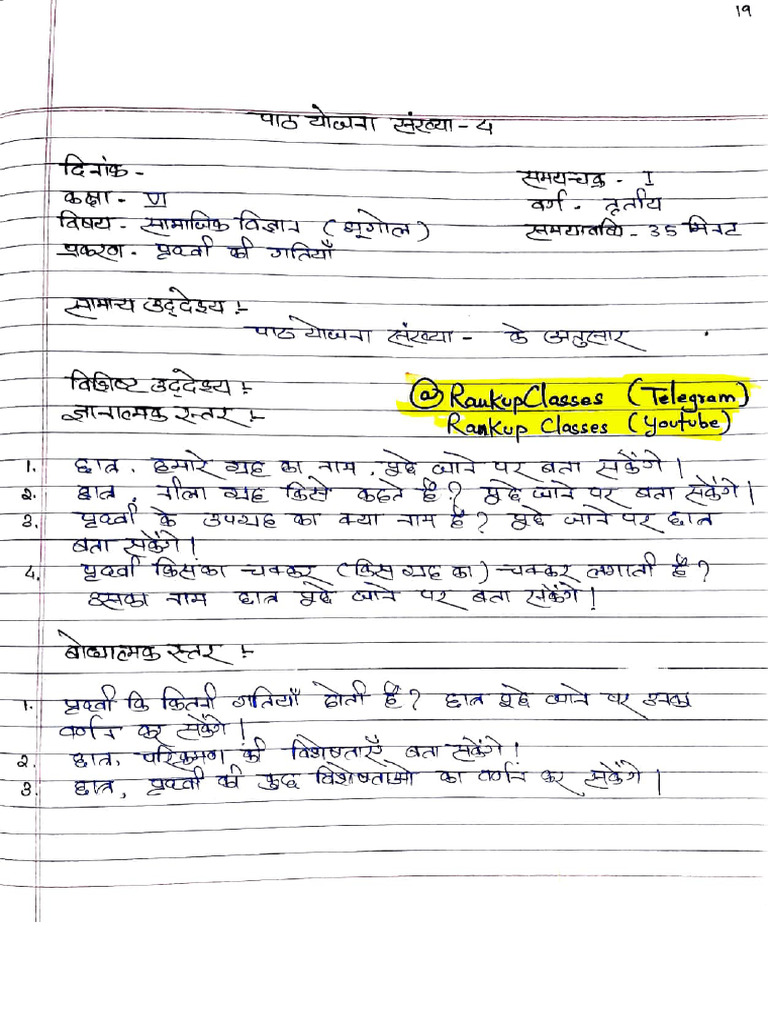 19
पाठ योजना संख्या - 4
दिनांक - समयचक्र - I
कक्षा - VI वर्ग - तृतीय
विषय - सामाजिक विज्ञान (भूगोल) समयावधि - 35 मिनट
प्रकरण - पृथ्वी की गतियाँ
सामान्य उद्देश्य :-
पाठ योजना संख्या - के अनुसार
विशिष्ट उद्देश्य :- @RankupClasses (Telegram)
ज्ञानात्मक स्तर :- Rankup Classes (Youtube)
1. छात्र, हमारे ग्रह का नाम, पूछे जाने पर बता सकेंगे।
2. छात्र, नीला ग्रह किसे कहते हैं? पूछे जाने पर बता सकेंगे।
3. पृथ्वी के उपग्रह का क्या नाम है? पूछे जाने पर छात्र
बता सकेंगे।
4. पृथ्वी किसका चक्कर (किस ग्रह का) चक्कर लगाती है?
इसका नाम छात्र पूछे जाने पर बता सकेंगे।
बोधात्मक स्तर :-
1. पृथ्वी कि कितनी गतियाँ होती हैं? छात्र पूछे जाने पर उनका
वर्णन कर सकेंगे।
2. छात्र, परिक्रमण की विशेषताएँ बता सकेंगे।
3. छात्र, पृथ्वी की कुछ विशेषताओ का वर्णन कर सकेंगे।